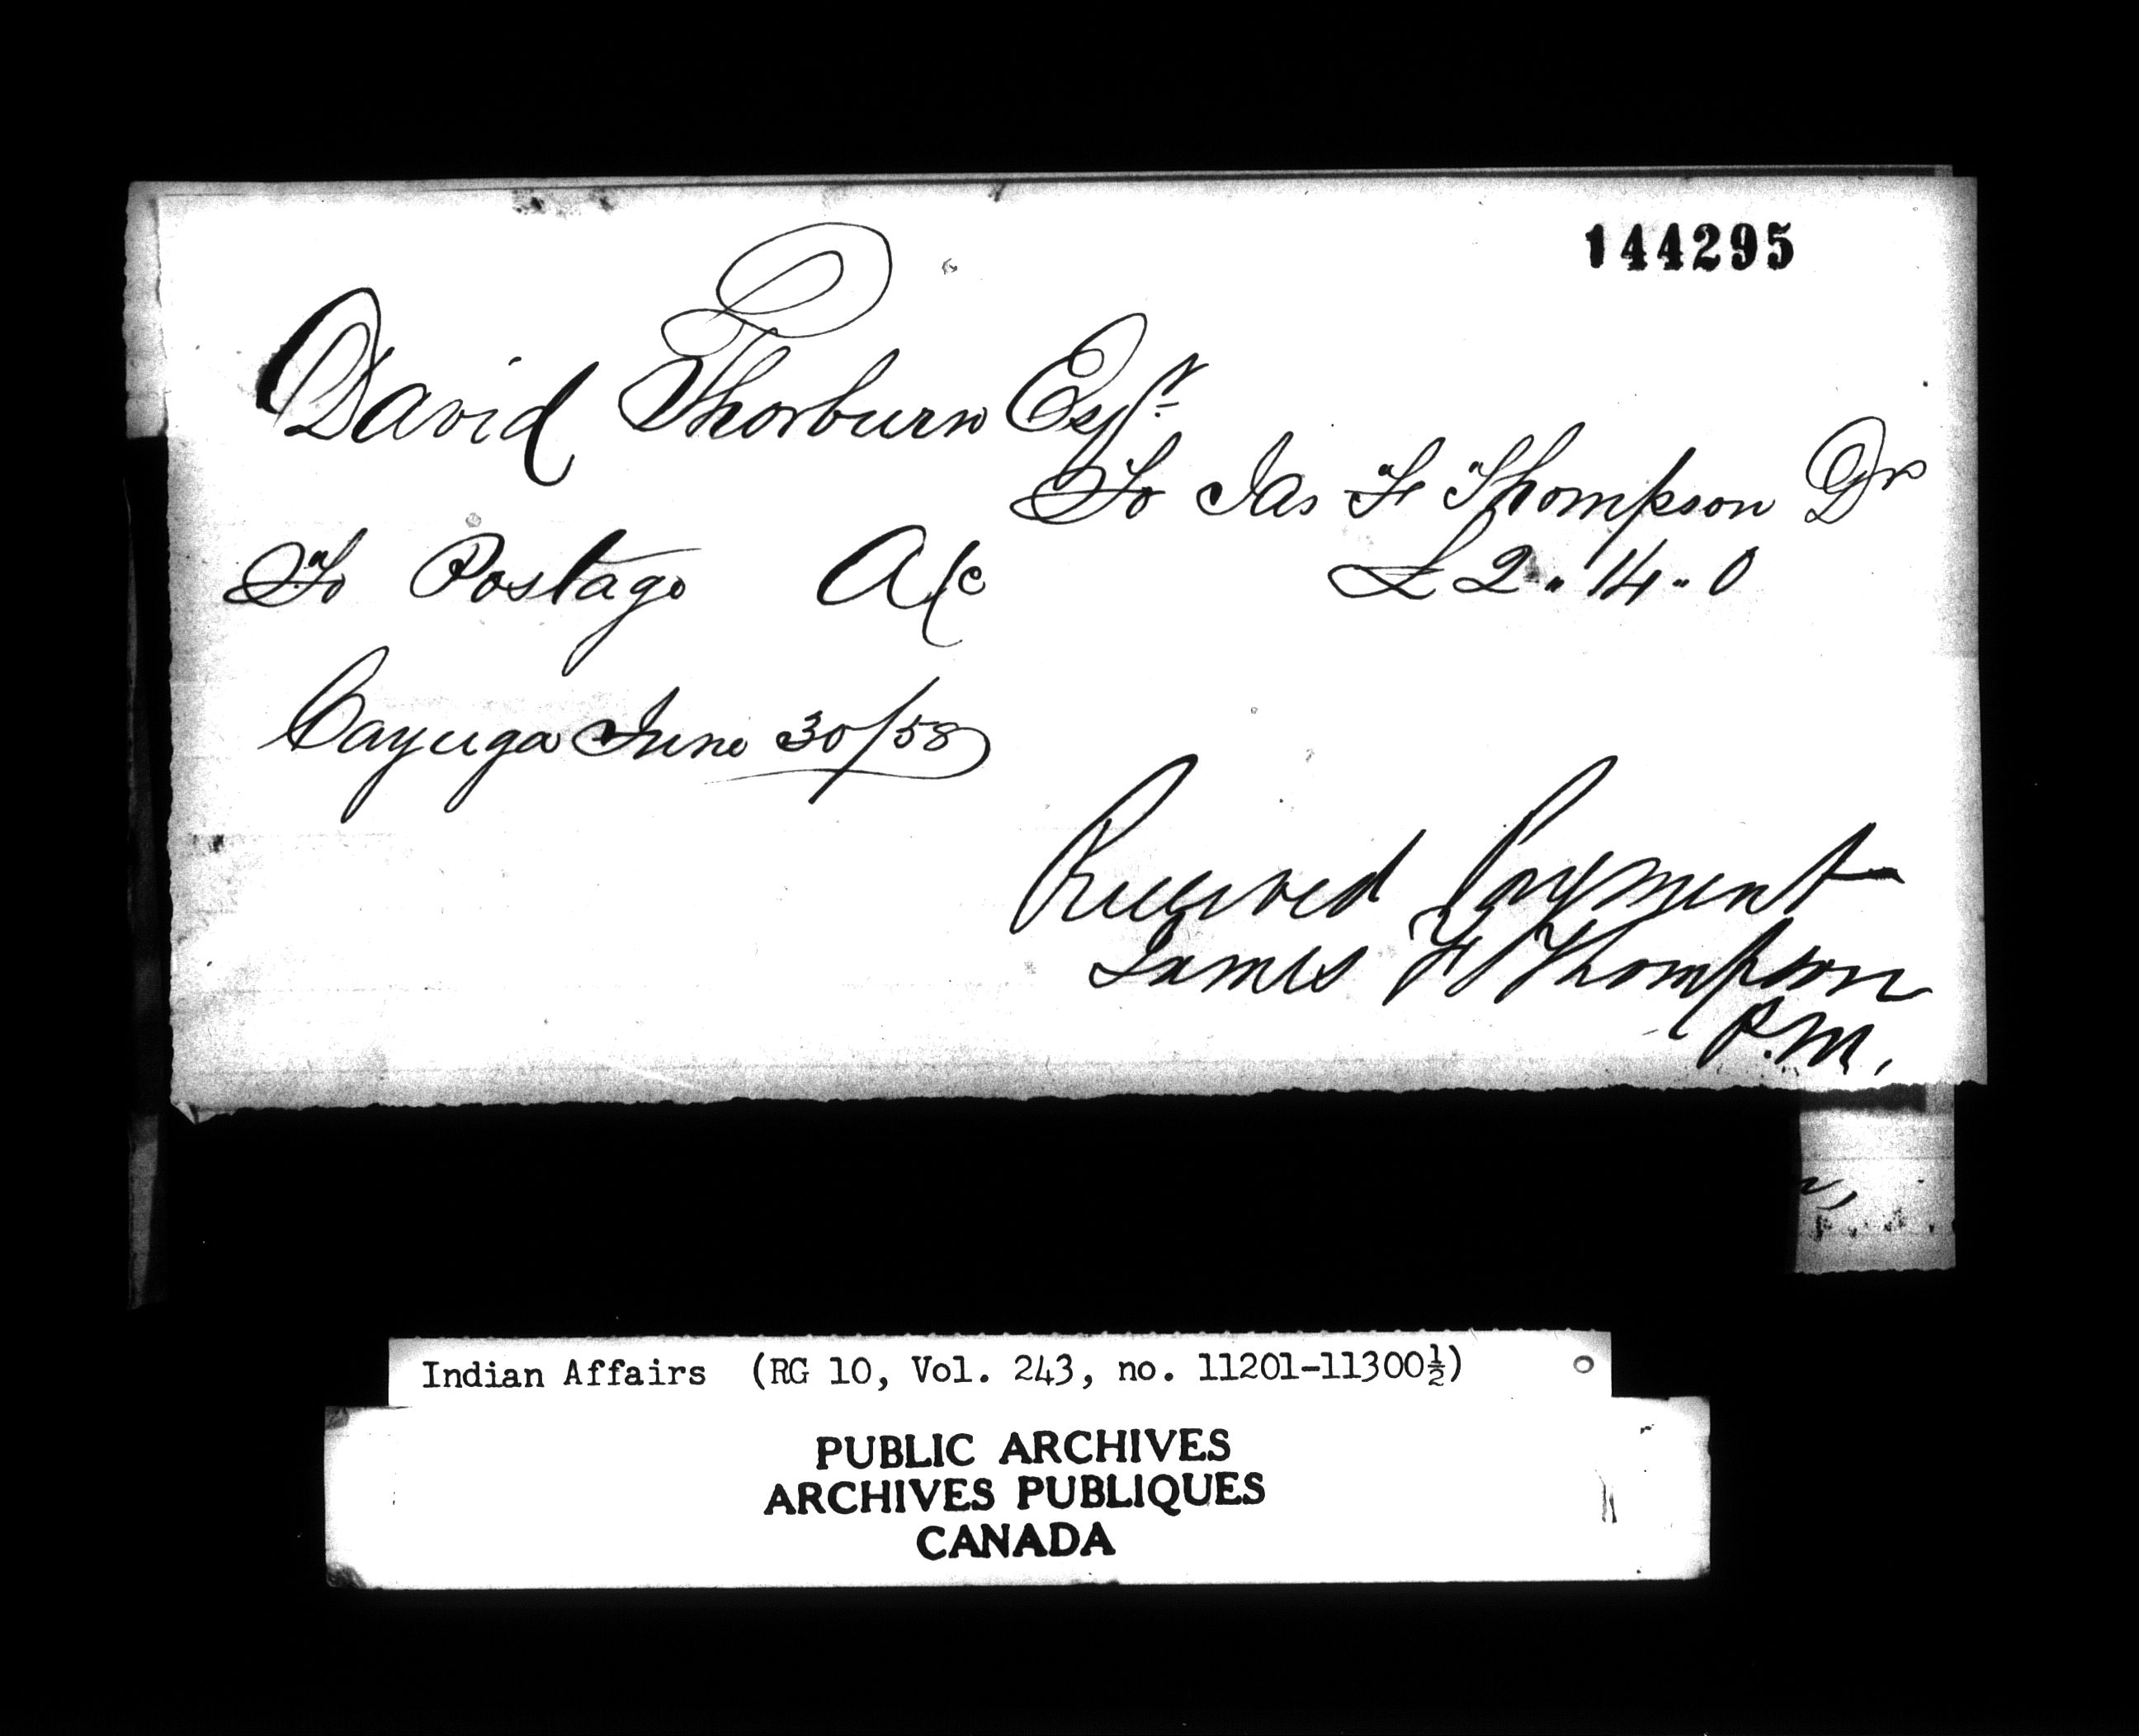 144295
David Thorburn Esqr.
To Jas F Thompson Dr
To Postage A/c £2.. 14.. 0
Cayuga June 30/58
Received Payment
James F Thompson
P.M.
Indian Affairs (RG 10, Vol. 243, no. 11201-11300½)
PUBLIC ARCHIVES
ARCHIVES PUBLIQUES
CANADA